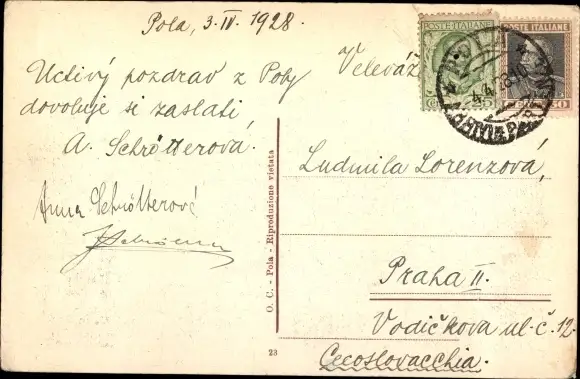 Pola, 3. IV. 1928.
Uctivý pozdrav z Poly
dovoluje si zaslati
A. Schrötterová.
Anna Schrötterová
POSTE ITALIANE
POSTE ITALIANE
Ludmila Lorenzová,
Praha II.
Vodičkova ul. č. 12.
Cecoslovacchia.
O. C. - Pola - Riproduzione vietata
23